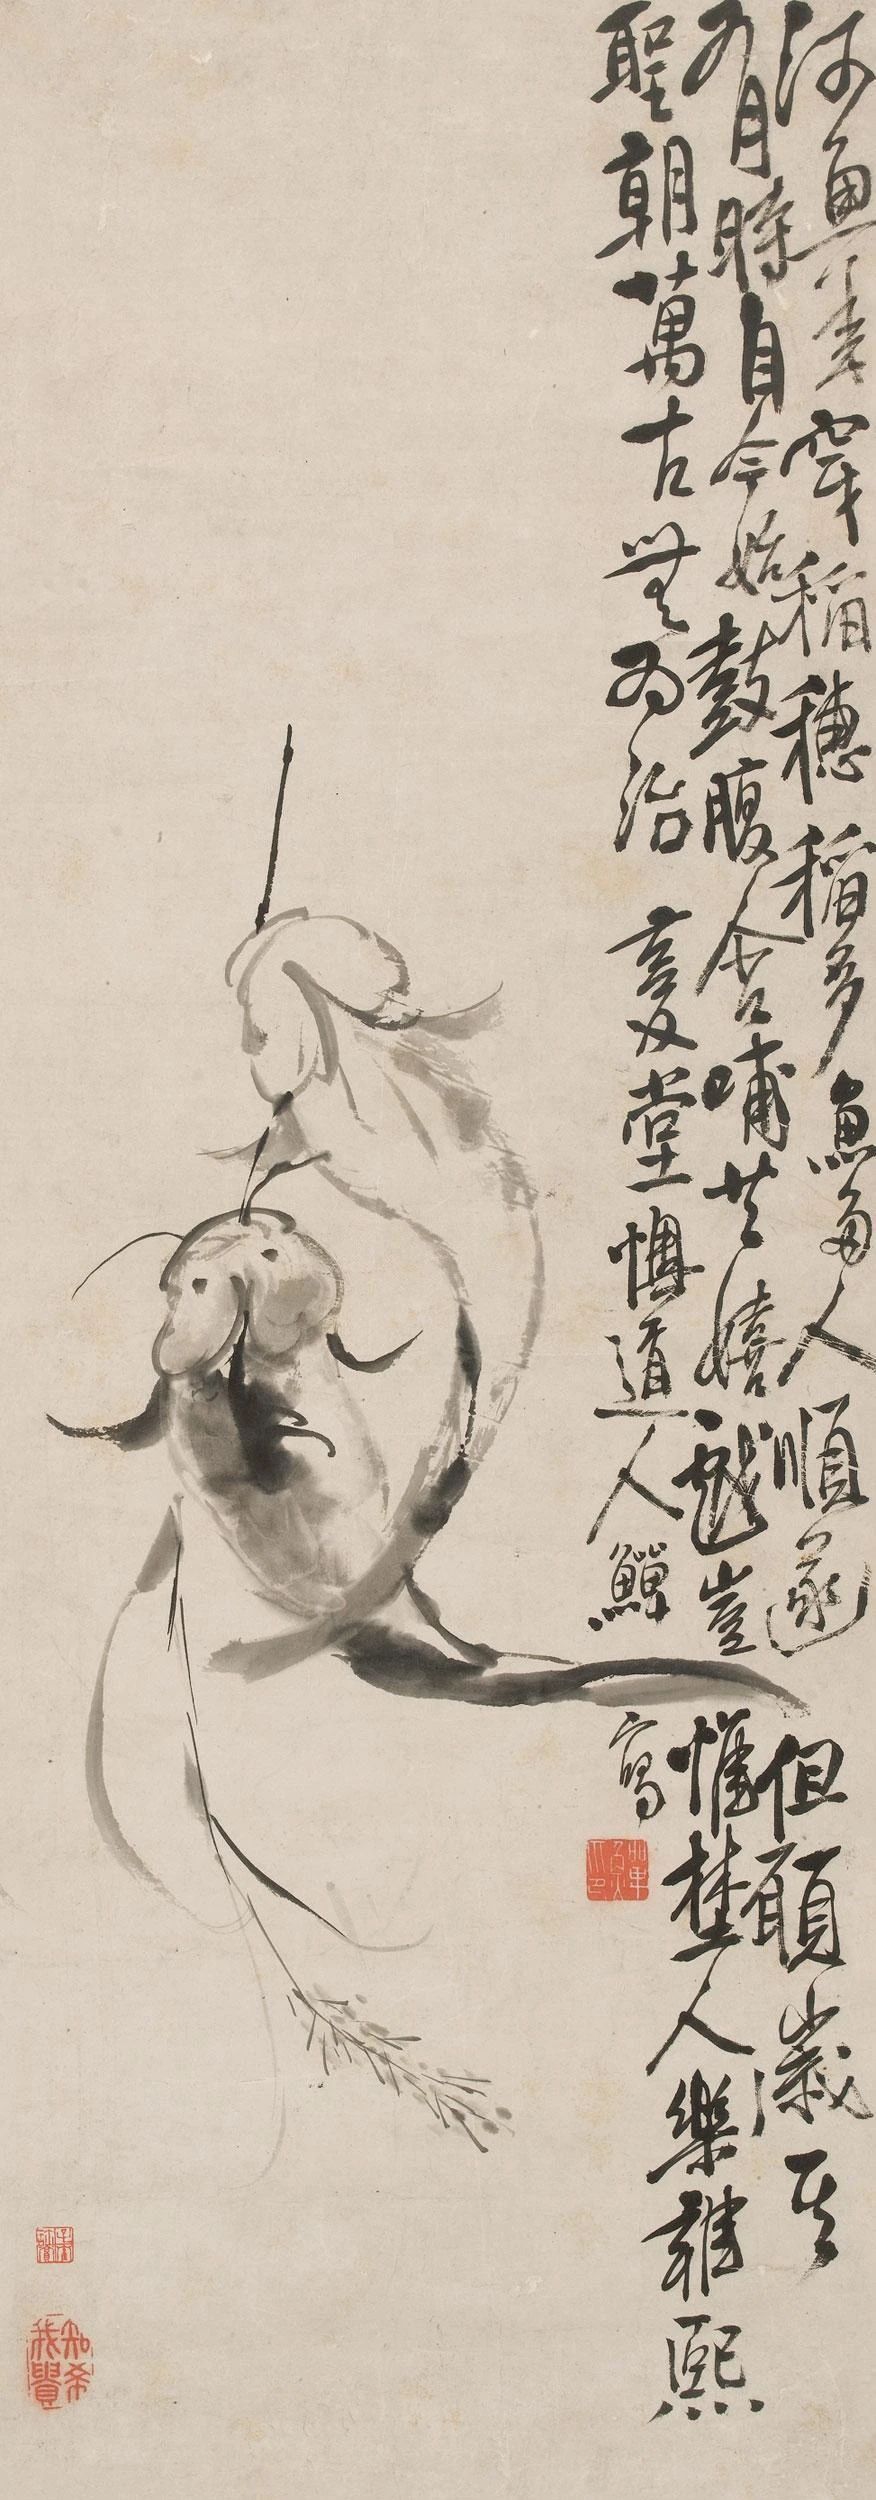 河魚穿稻穗稻多魚多人順遂但願歲其
有月時自今始鼓腹含哺共嬉戲豈惟野人樂雍熙
聖朝萬古無為治 愛堂懼道人鱓寫
知希
我貴